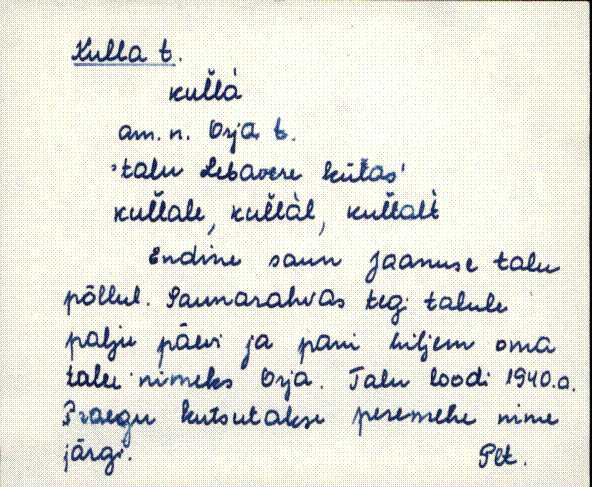 Kulla t.
kul̆l̆à
am. n. Orja t.
'talu Lebavere külas'
kul̆l̆ale, kul̆l̆àl, kul̆l̆alt̀
Endine saun Jaanuse talu
põllul. Saunarahvas tegi talule
palju päevi ja pani hiljem oma
talu nimeks Orja. Talu loodi 1940.a.
Praegu kutsutakse peremehe nime
järgi. Plt.